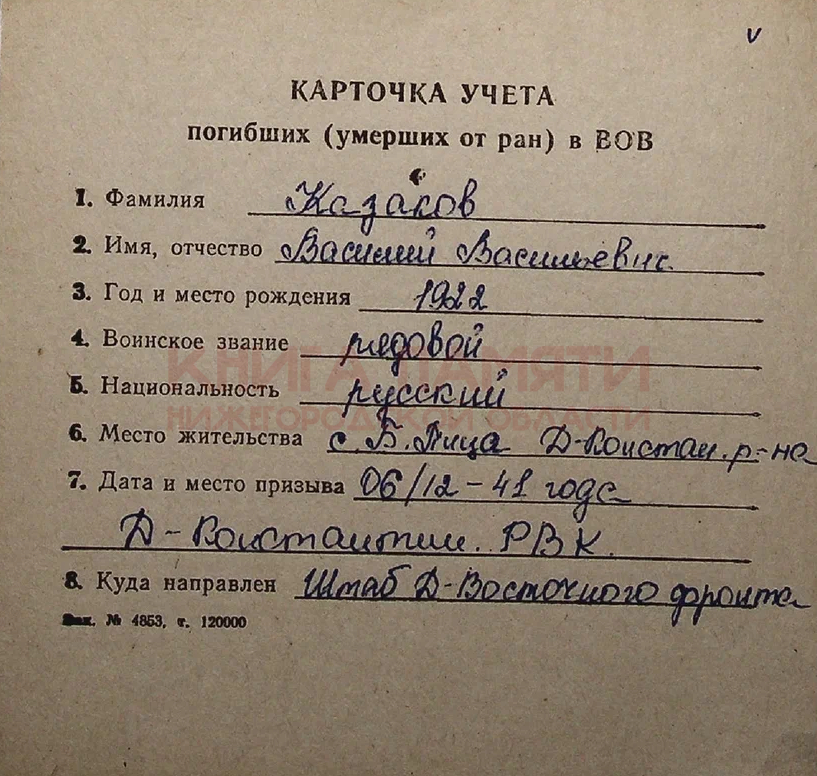 v
КАРТОЧКА УЧЕТА
погибших (умерших от ран) в ВОВ
1. Фамилия Казаков
2. Имя, отчество Василий Васильевич
3. Год и место рождения 1922
4. Воинское звание рядовой
КНИГА ПАМЯТИ
5. Национальность русский
НИЖЕГОРОДСКОЙ ОБЛАСТИ
6. Место жительства с Б. Пица Д-Констан. р-на
7. Дата и место призыва 06/12 - 41 года
Д-Константин. РВК.
8. Куда направлен Штаб Д-Восточного фронта
Зак. № 4853, т. 120000